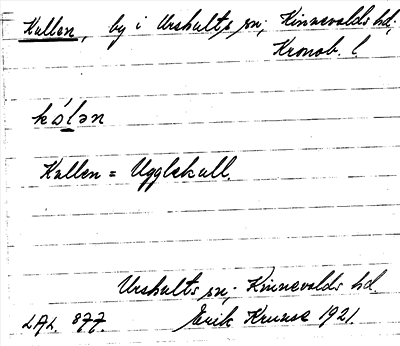 Kullen, by i Urshults sn; Kinnevalds hd;
Kronob. l.
kólən
Kullen = Ugglekull.
Urshults sn; Kinnevalds hd.
LAL. 877. Erik Kruuse 1921.